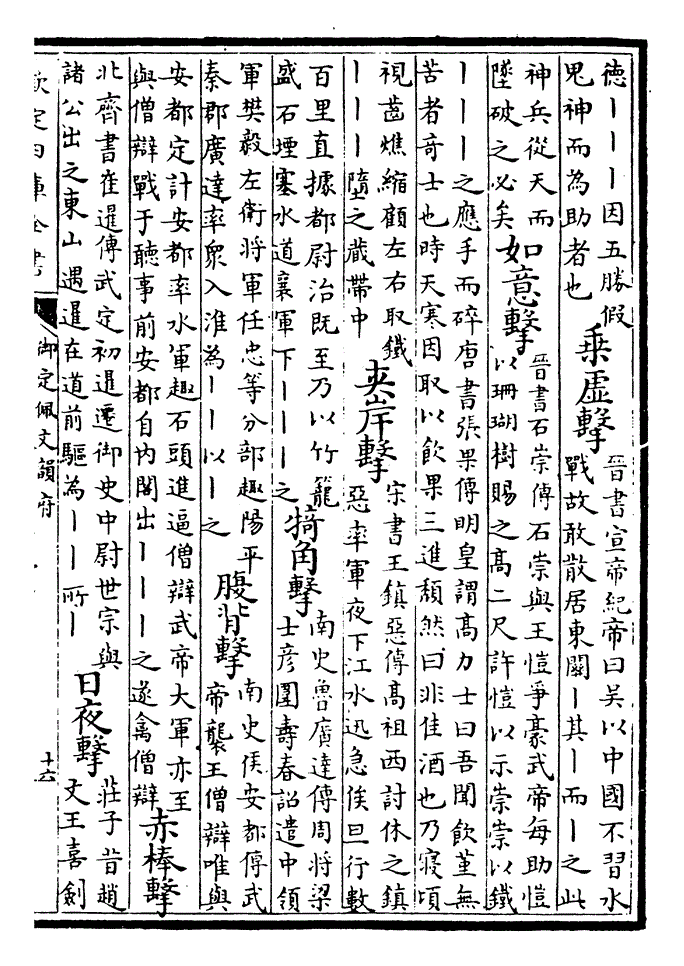 德丨丨丨因五勝假
鬼神而為助者也
乗虛擊
晉書宣帝紀帝曰吳以中國不習水
戰故敢散居東關丨其丨而丨之此
神兵從天而
墜破之必矣
如意擊
晉書石崇傳石崇與王愷爭豪武帝每助愷
以珊瑚樹賜之髙二尺許愷以示崇崇以鐵
丨丨丨之應手而碎唐書張果傳明皇謂髙力士曰吾聞飲堇無
苦者竒士也時天寒因取以飲果三進頽然曰非佳酒也乃寢頃
視齒燋縮顧左右取鐵
丨丨丨墮之藏帶中
夾岸擊
宋書王鎮惡傳髙祖西討休之鎮
惡率軍夜下江水迅急俟旦行數
百里直據都尉治既至乃以竹籠
盛石堙塞水道襄軍下丨丨丨之
犄角擊
南史魯廣達傳周將梁
士彦圍壽春詔遣中領
軍樊毅左衛將軍任忠等分部趣陽平
秦郡廣達率衆入淮為丨丨以丨之
腹背擊
南史侯安都傳武
帝襲王僧辯唯與
安都定計安都率水軍趣石頭進逼僧辯武帝大軍亦至
與僧辯戰于聽事前安都自内閣出丨丨丨之遂禽僧辯
赤棒擊
北齊書崔暹傳武定初暹遷御史中尉世宗與
諸公出之東山遇暹在道前驅為丨丨所丨
日夜擊
莊子昔趙
文王喜劍
欽定四庫全書
御定佩文韻府
十六